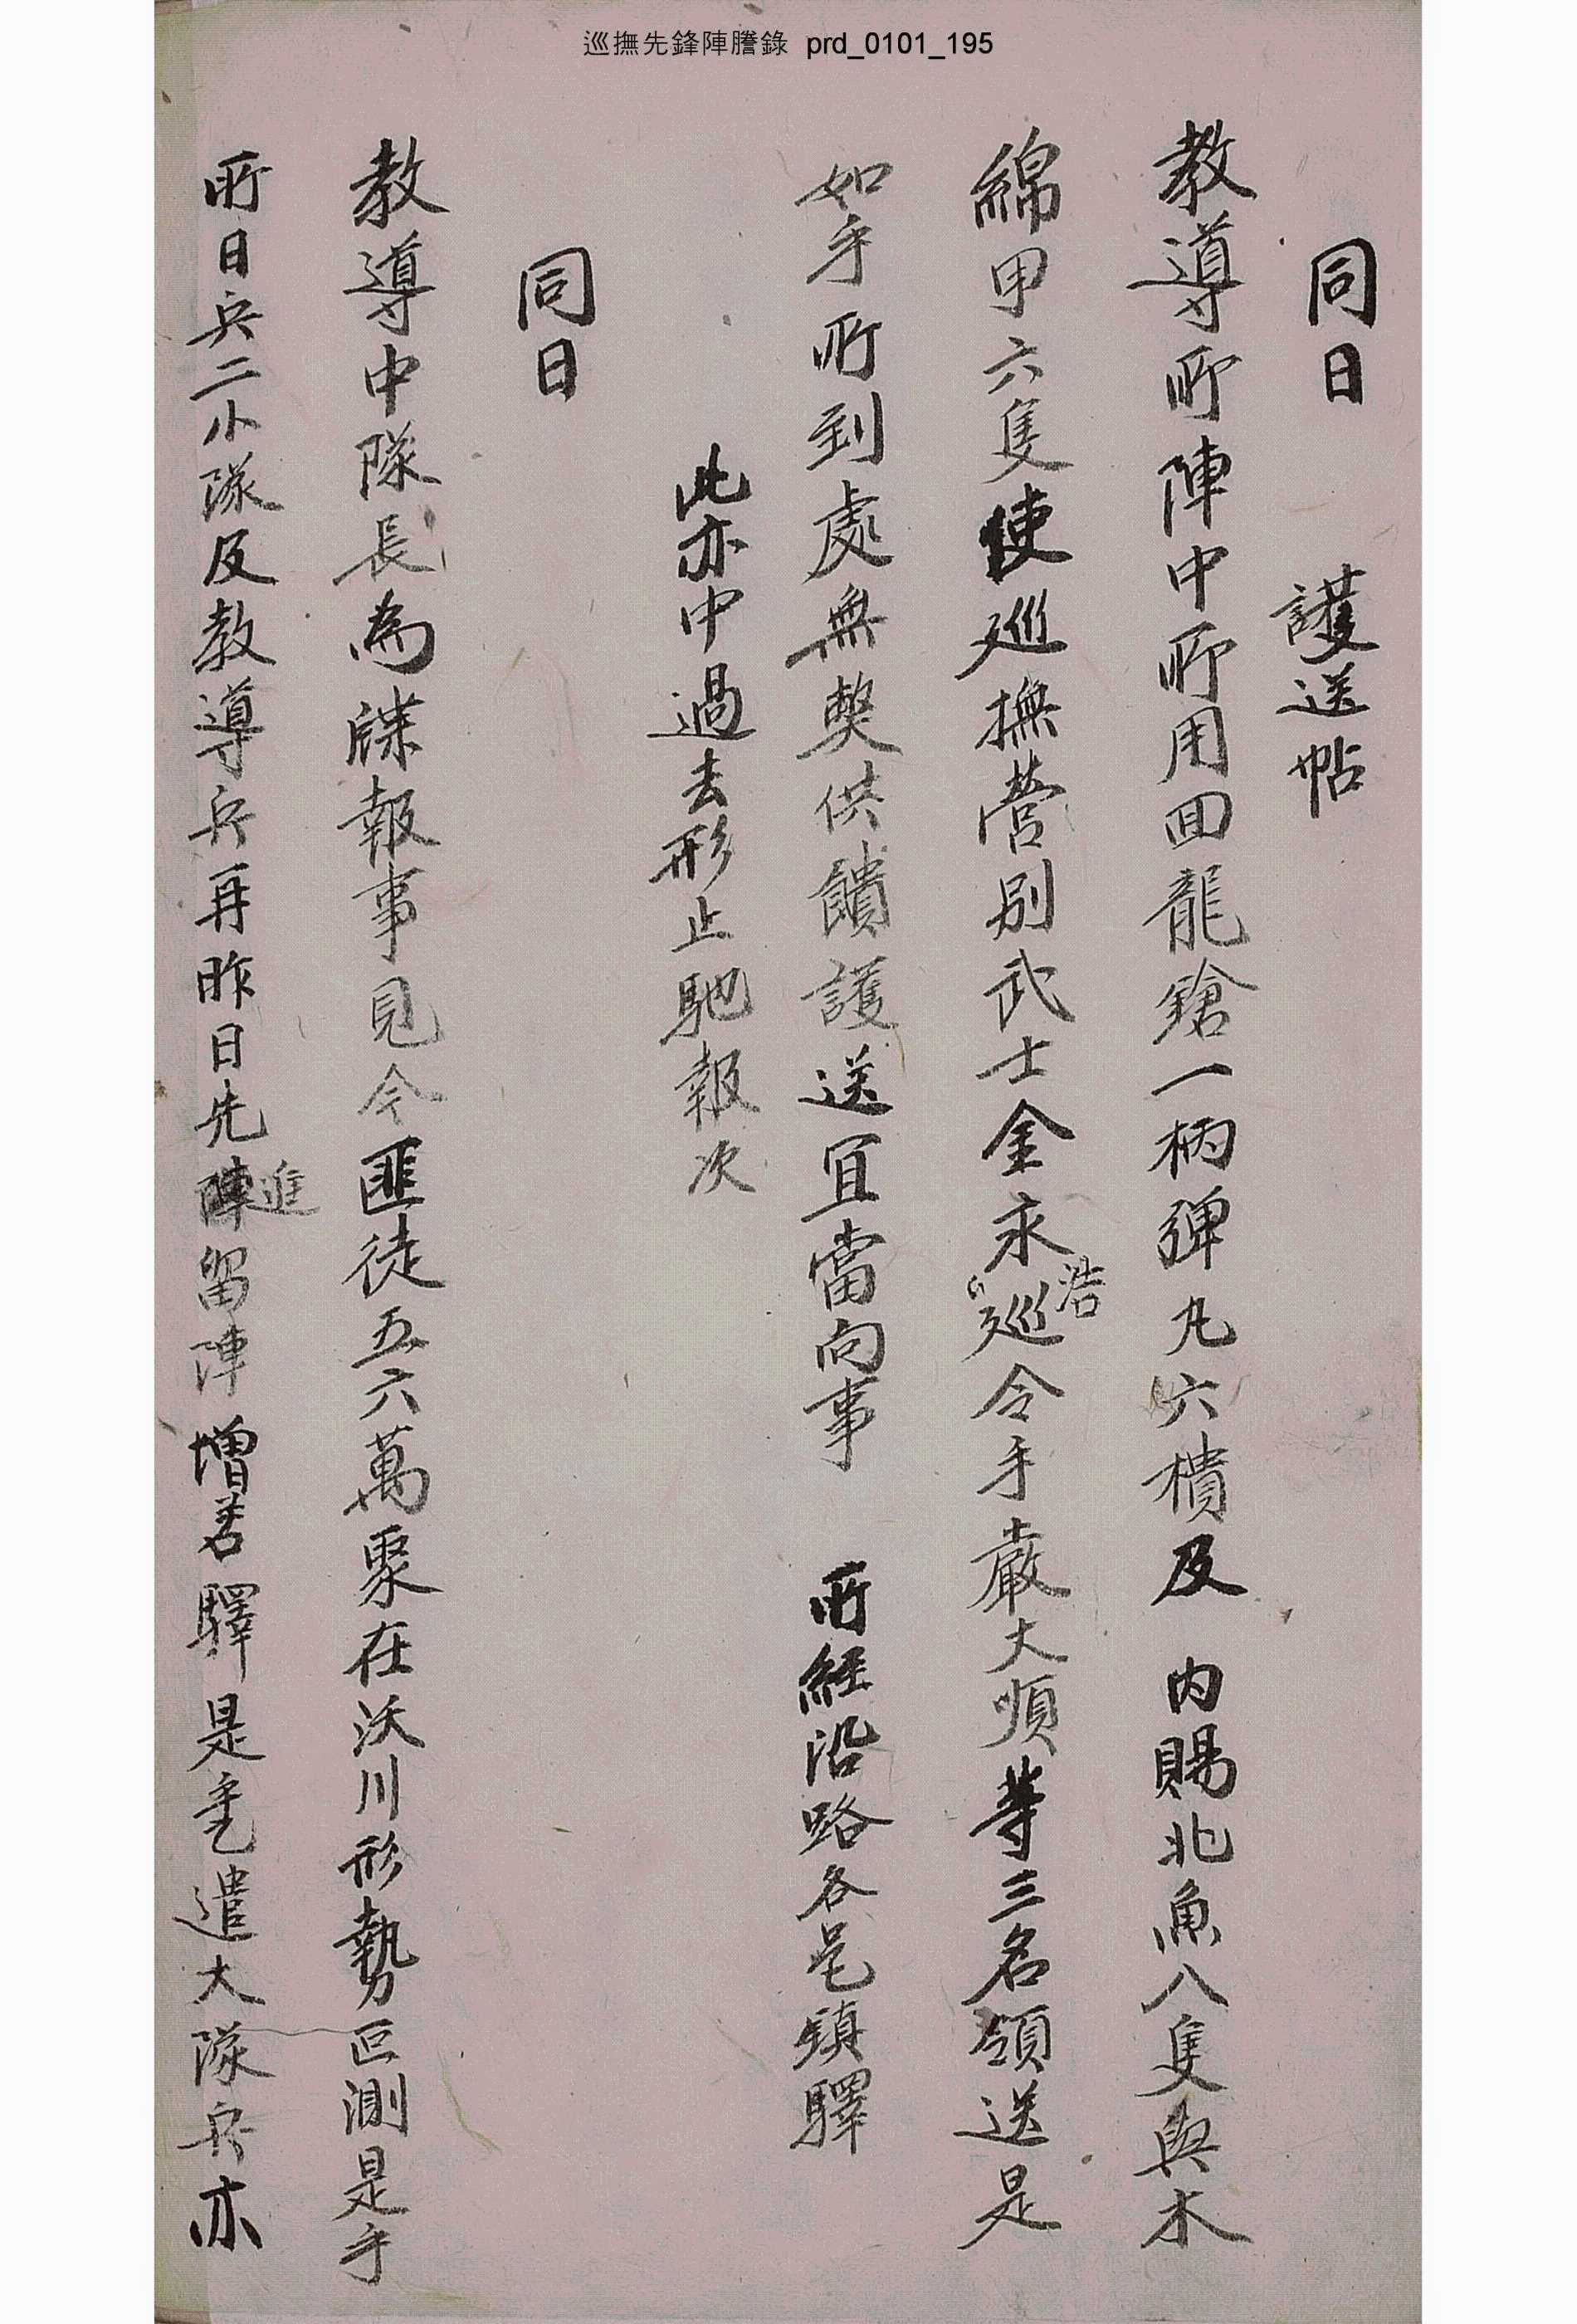 巡撫先鋒陣謄錄 prd_0101_195
同日 護送帖
教導所陣中所用回龍鎗一柄弾丸六樻及 內賜北魚八隻與木
綿甲六隻使巡撫營別武士金永浩巡令手嚴大順等三名領送是
如乎所到處無獘供饋護送宜當向事 所經沿路各邑鎮驛
此亦中過去形止馳報次
同日
教導中隊長為牒報事見今匪徒五六萬聚在沃川形勢叵測是乎
所日兵二小隊及教導兵再昨日先進留陣增若驛是乎乞遣大隊兵亦